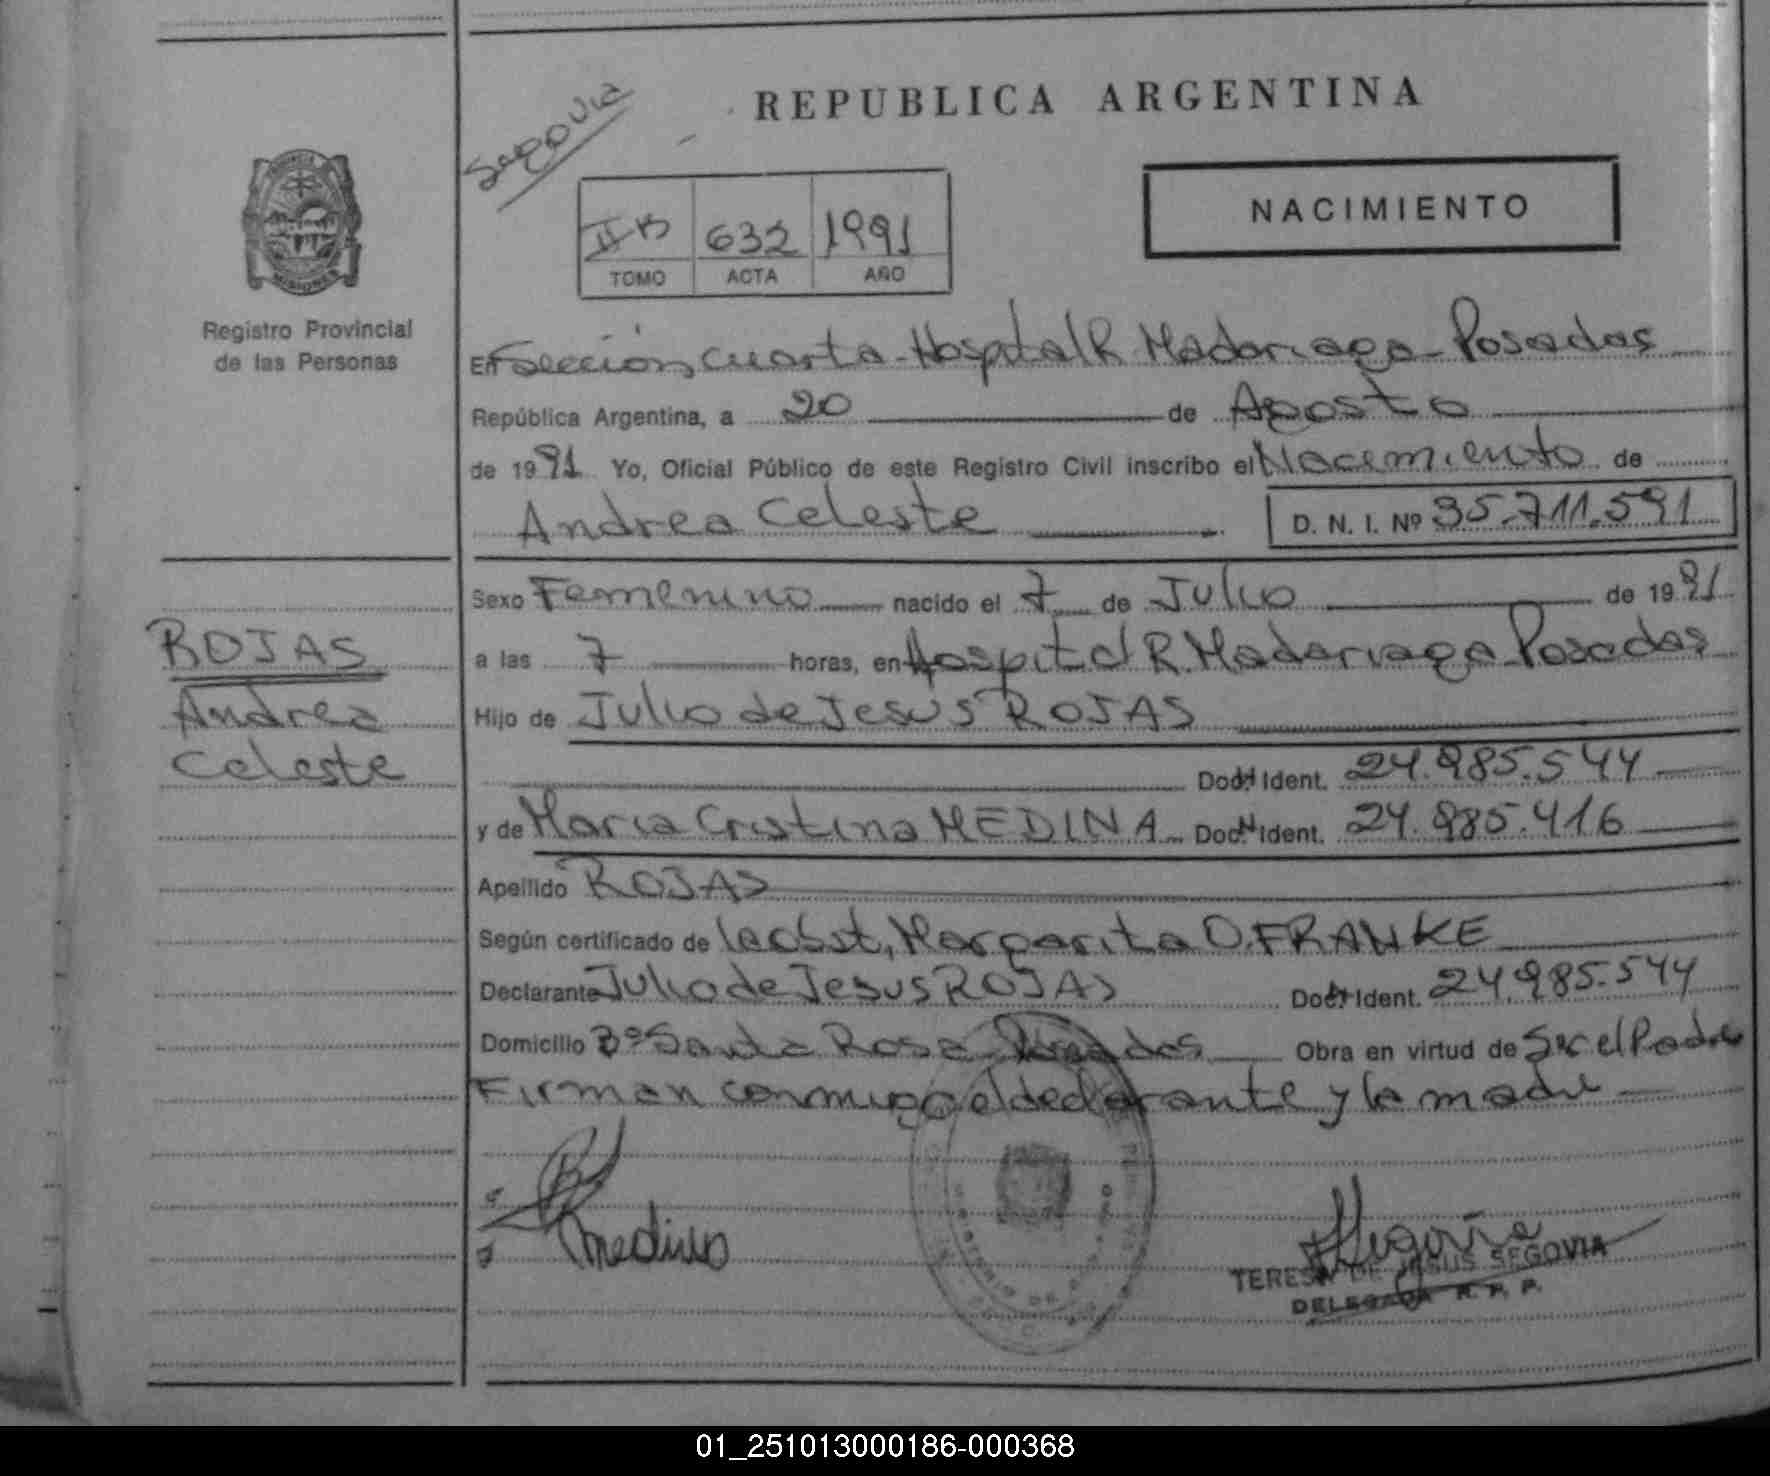 Segovia
REPUBLICA ARGENTINA
NACIMIENTO
II B 632 1991
TOMO ACTA AÑO
MISIONES
Registro Provincial
de las Personas
En Sección cuarta - Hospital R. Madariaga - Posadas
República Argentina, a 20 de Agosto
de 1991 Yo, Oficial Público de este Registro Civil inscribo el Nacimiento de
Andrea Celeste D. N. I. Nº 35.711.591
Sexo Femenino nacido el 7 de Julio de 1991
ROJAS
Andrea
Celeste
a las 7 horas, en Hospital R. Madariaga Posadas
Hijo de Julio de Jesus ROJAS
Doc. Ident. 24.985.544
y de Maria Cristina MEDINA Doc. Ident. 24.985.416
Apellido ROJAS
Según certificado de la obst, Margarita O. FRANKE
Declarante Julio de Jesus ROJAS Doc. Ident. 24.985.544
Domicilio Bº Santa Rosa Posadas Obra en virtud de Ser el Padre
Firman conmigo el declarante y la madre
Medina
Segovia
TERESA DE JESUS SEGOVIA
DELEGADA R. P. P.
01_251013000186-000368